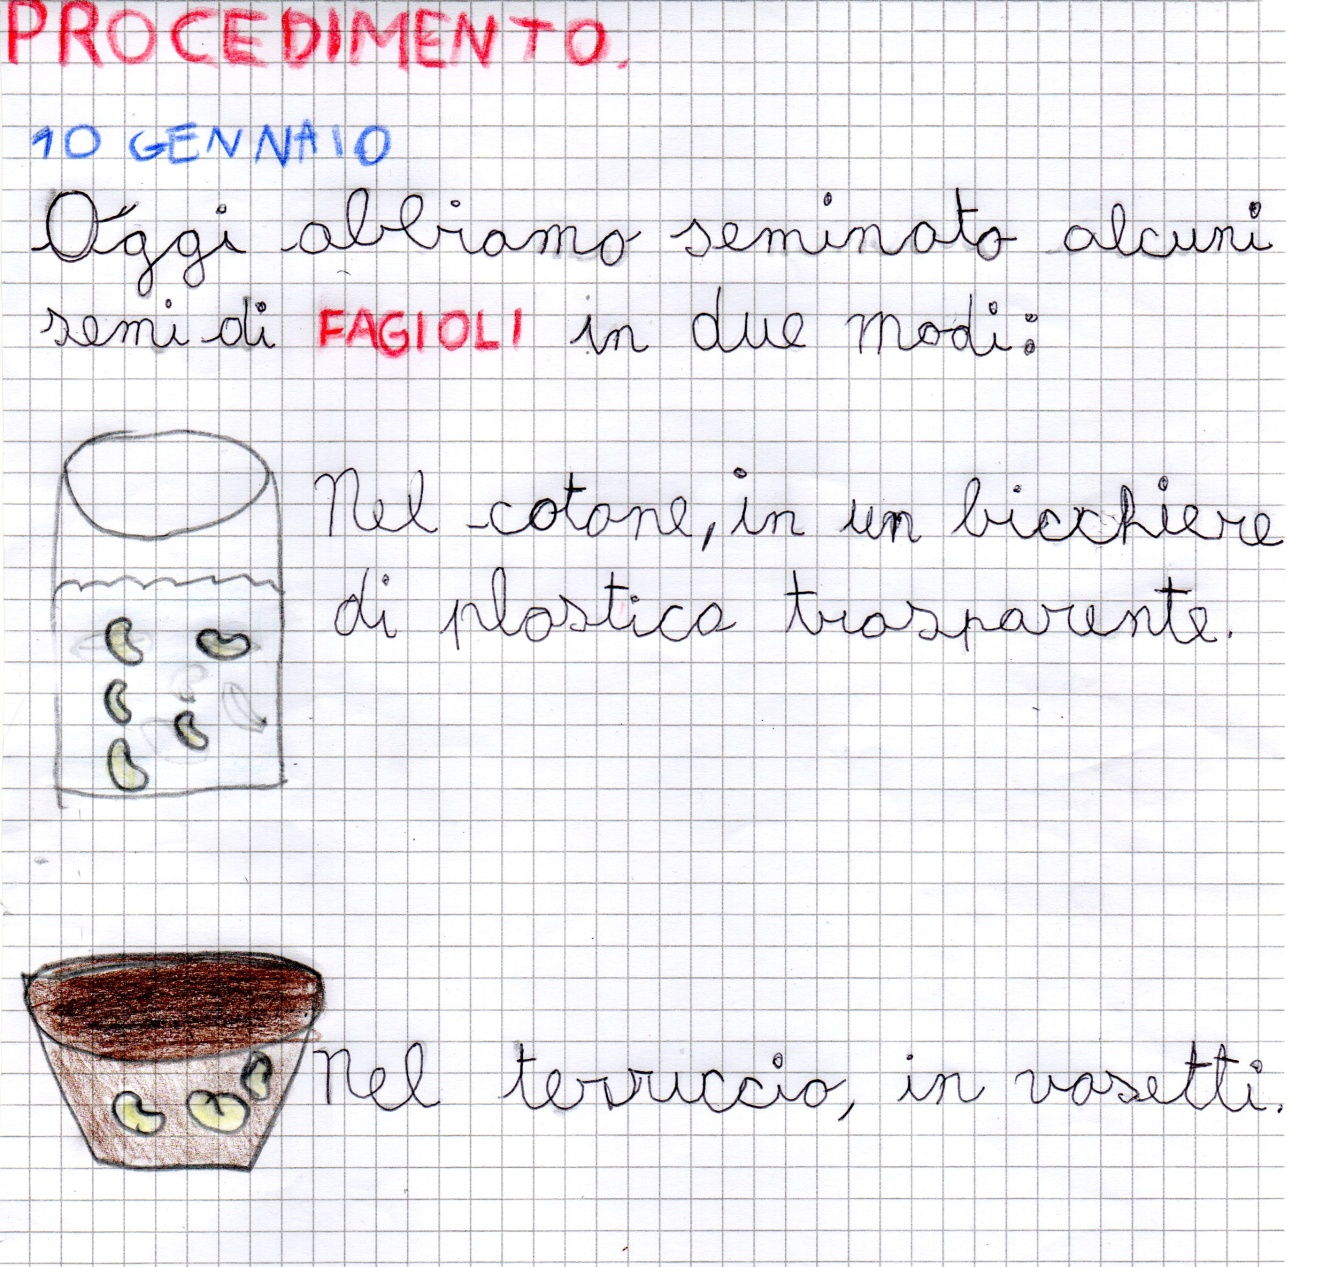 PROCEDIMENTO.
10 GENNAIO
Oggi abbiamo seminato alcuni
semi di FAGIOLI in due modi:
Nel cotone, in un bicchiere
di plastica trasparente.
Nel terruccio, in vasetti.